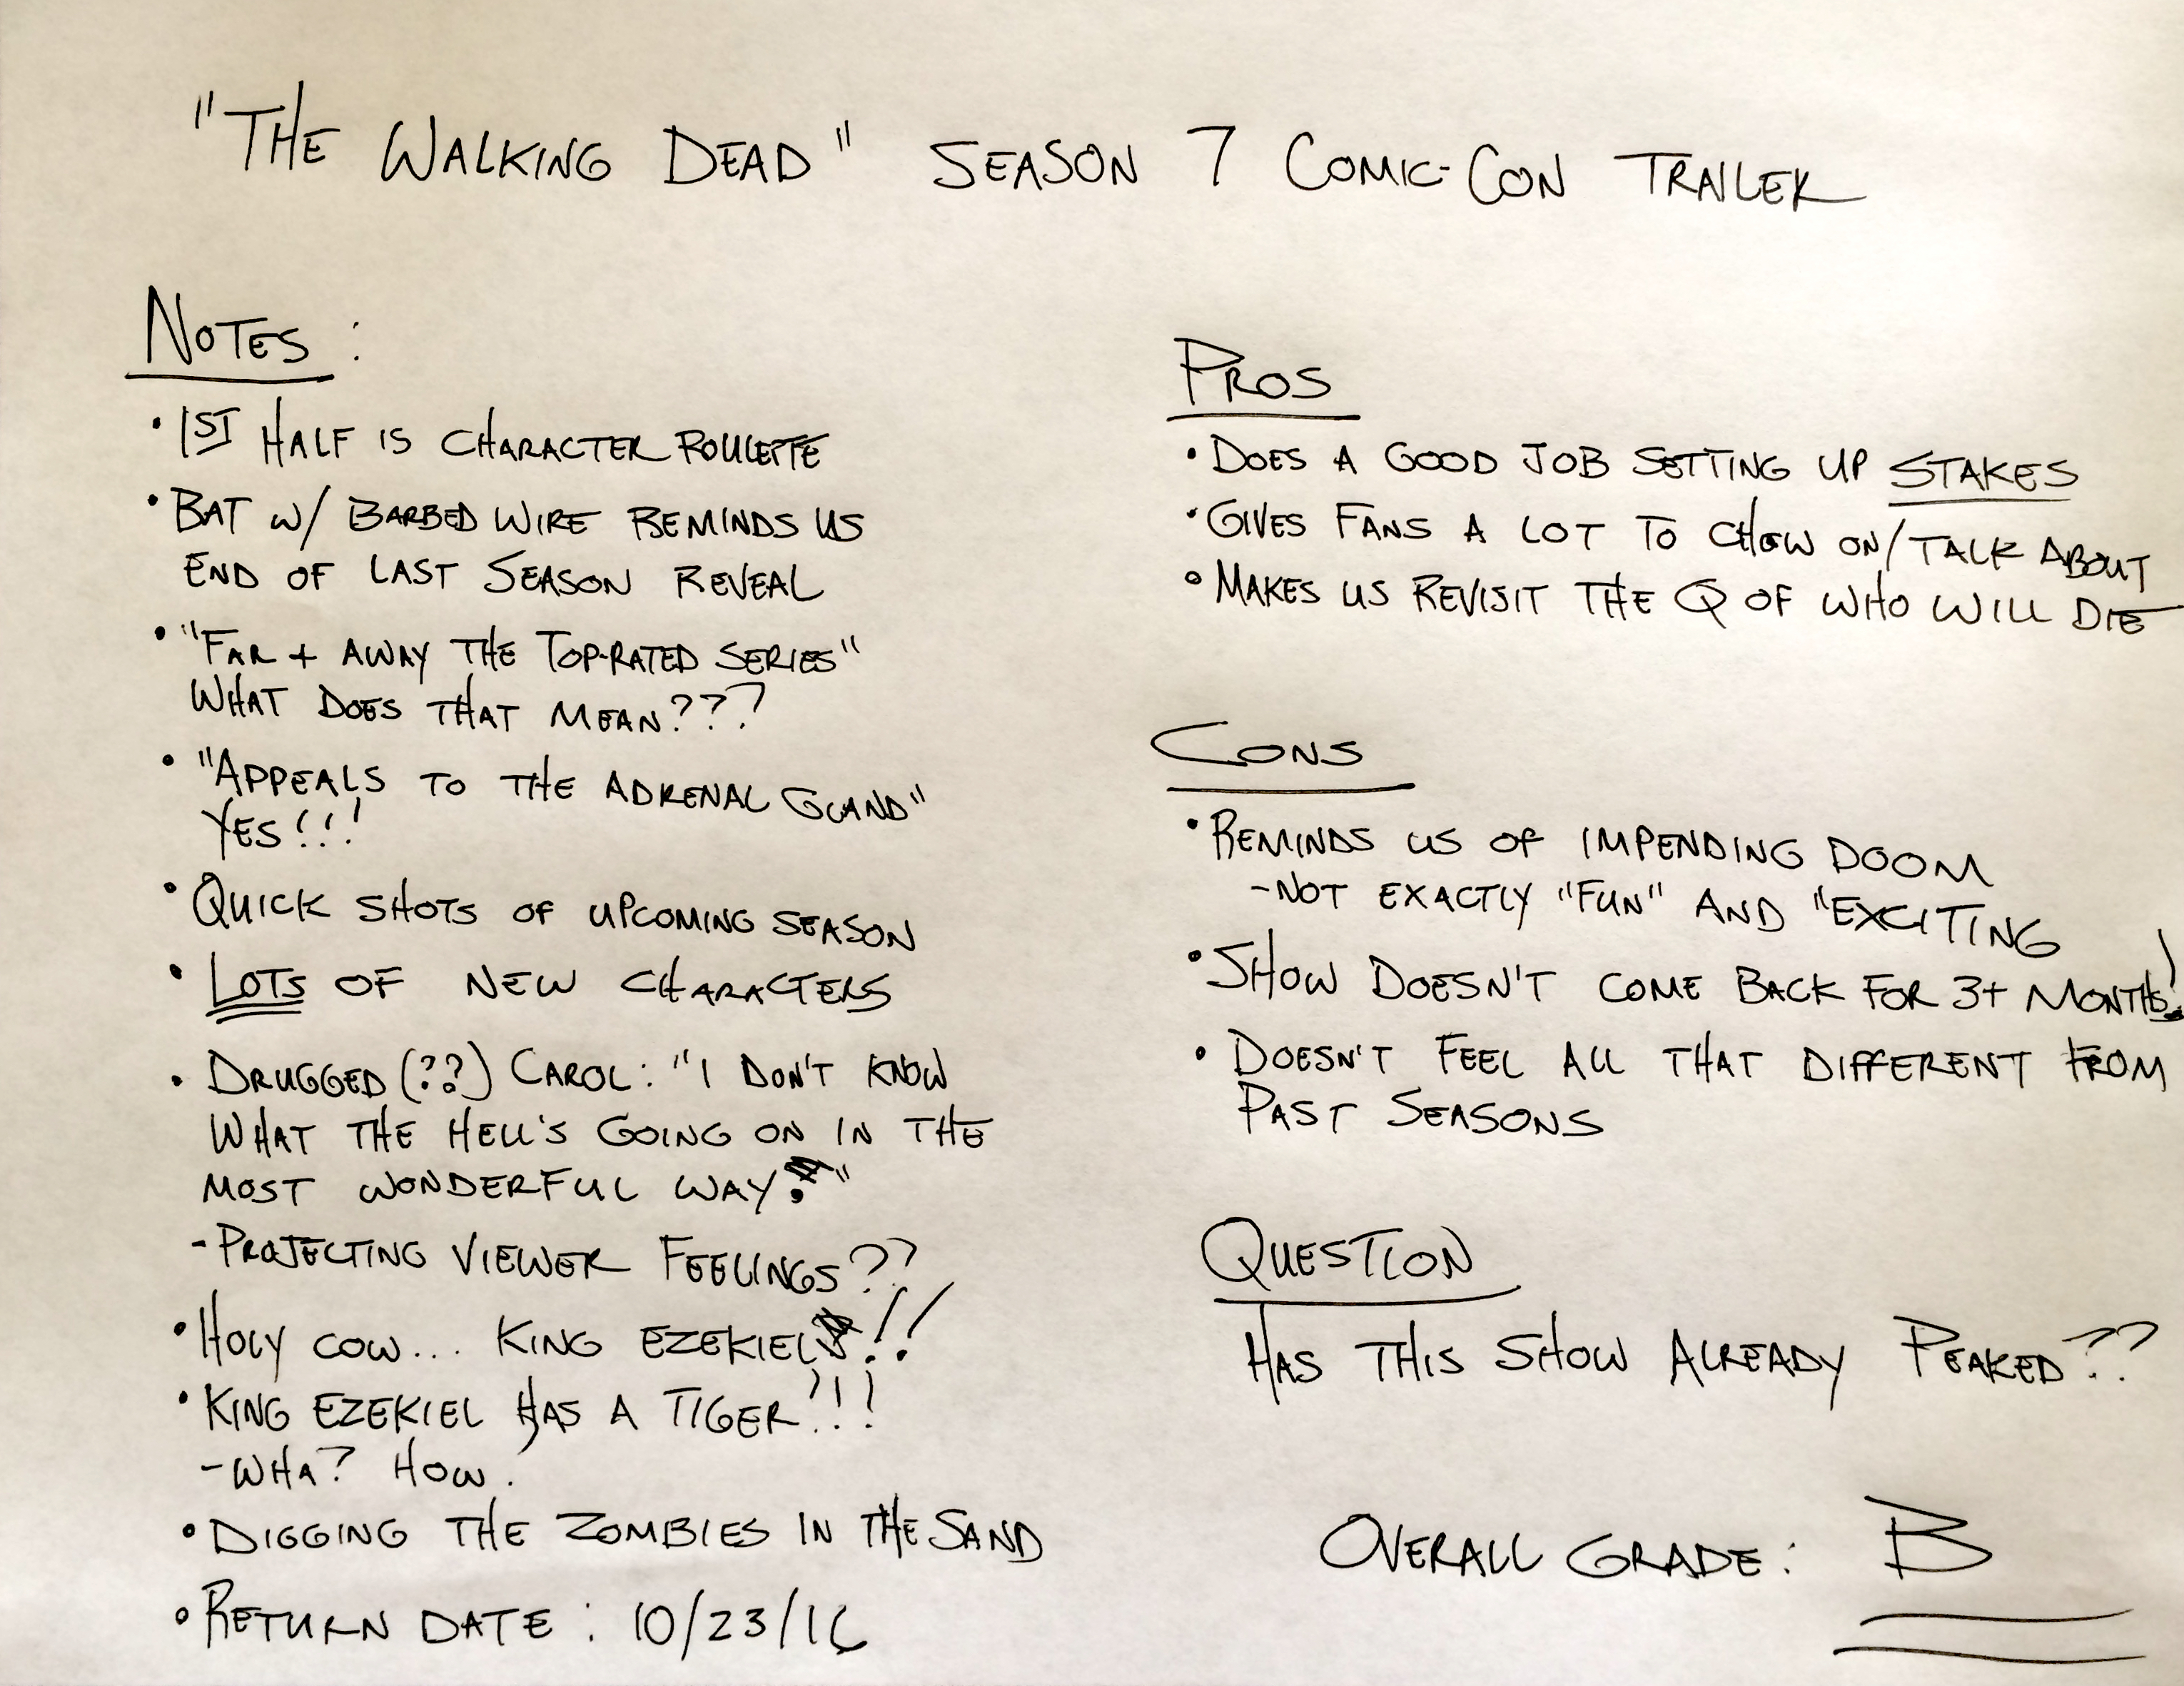 "THE WALKING DEAD" SEASON 7 COMIC-CON TRAILER
NOTES:
• 1ST HALF IS CHARACTER ROULETTE
• BAT W/ BARBED WIRE REMINDS US
END OF LAST SEASON REVEAL
• "FAR + AWAY THE TOP-RATED SERIES"
WHAT DOES THAT MEAN???
• "APPEALS TO THE ADRENAL GLAND"
YES!!!
• QUICK SHOTS OF UPCOMING SEASON
• LOTS OF NEW CHARACTERS
• DRUGGED (??) CAROL: "I DON'T KNOW
WHAT THE HELL'S GOING ON IN THE
MOST WONDERFUL WAY."
- PROJECTING VIEWER FEELINGS??
• HOLY COW... KING EZEKIEL!!
• KING EZEKIEL HAS A TIGER?!!
- WHA? HOW.
• DIGGING THE ZOMBIES IN THE SAND
• RETURN DATE: 10/23/16
PROS
• DOES A GOOD JOB SETTING UP STAKES
• GIVES FANS A LOT TO CHEW ON/TALK ABOUT
• MAKES US REVISIT THE Q OF WHO WILL DIE
CONS
• REMINDS US OF IMPENDING DOOM
- NOT EXACTLY "FUN" AND "EXCITING
• SHOW DOESN'T COME BACK FOR 3+ MONTHS!
• DOESN'T FEEL ALL THAT DIFFERENT FROM
PAST SEASONS
QUESTION
HAS THIS SHOW ALREADY PEAKED??
OVERALL GRADE: B